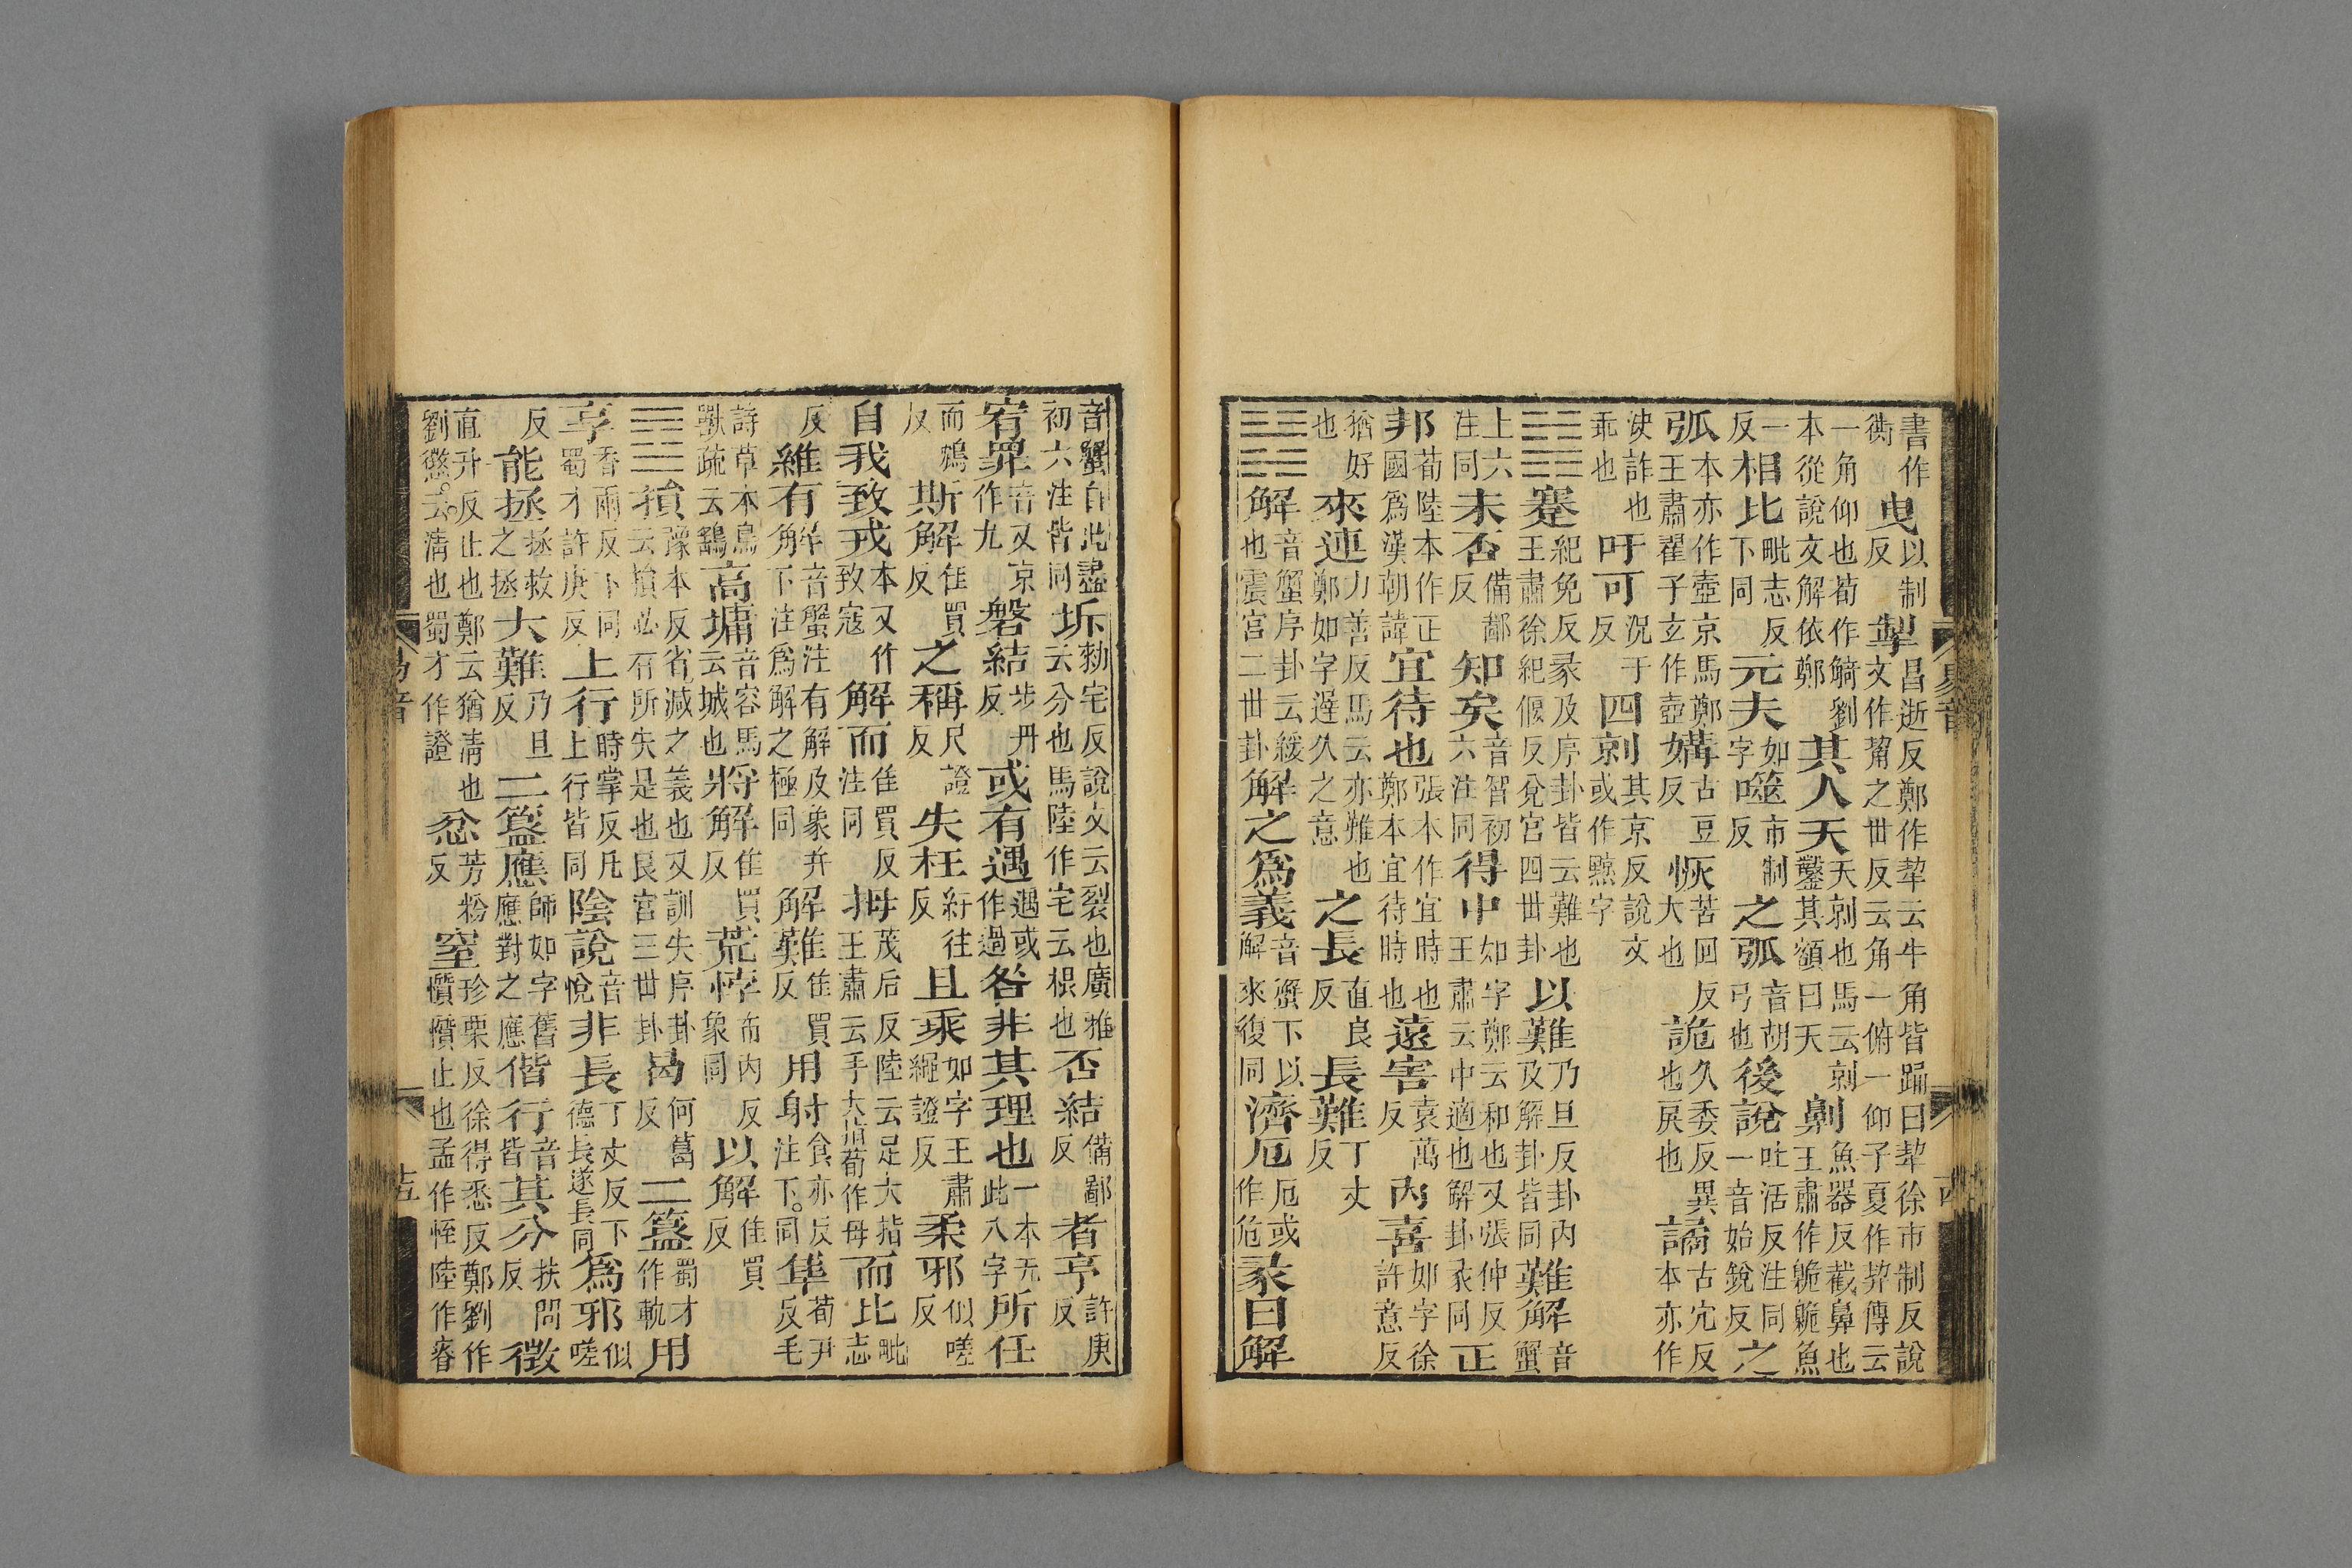 書作曳以制反掣昌逝反鄭作犎云牛角皆踊曰犎徐市制反說文作觢之世反云角一俯一仰子夏作契傳云
一角仰也荀作觭劉本從說文解依鄭其人天天剠也馬云剠鑿其額曰天劓魚器反截鼻也王肅作臲臲魚
一反相比毗志反下同元夫如字噬市制反之弧音胡弓也後說吐活反注同一音始銳反之
弧本亦作壺京馬鄭王肅翟子玄作壺媾古豆反恢苦回反大也詭久委反異也戾也譎古穴反本亦作
決詐也乖也吁可況于反四剠其京反說文或作黥字
䷦蹇紀免反彖及序卦皆云難也王肅徐紀偃反兌宮四世卦以難乃旦反卦內及解卦皆同難解音蟹
上六注同未否備鄙反知矣音智初六注同得中如字鄭云和也又張仲反王肅云中適也解卦彖同正
邦荀陸本作正國為漢朝諱宜待也張本作宜時也鄭本宜待時也遠害袁萬反內喜如字徐許意反
猶好也來連力善反馬云亦難也鄭如字遲久之意之長直良反長難丁丈反
䷧解音蟹序卦云緩也震宮二世卦解之為義音蟹下以解來復同濟厄厄或作危彖曰解
音蟹自此盡初六注皆同坼勑宅反說文云裂也廣雅云分也馬陸作宅云根也否結備鄙反者亨許庚反
宥罪音又京作尤磐結步丹反或有遇遇或作過咎非其理也一本无此八字所任
而鴆反斯解佳買反之稱尺證反失枉紆往反且乘如字王肅繩證反柔邪似嗟反
自我致戎本又作致寇解而佳買反注同拇茂后反陸云足大指王肅云手大指荀作母而比毗志
反維有解音蟹注有解及象并下注為解之極同解難佳買反用射食亦反注下同隼荀尹反毛
詩草木鳥獸疏云鷂高墉音容馬云城也將解佳買反荒悖布內反象同以解佳買反
䷨損孫本反省減之義也又訓失序卦云損必有所失是也艮宮三世卦曷何葛反二簋蜀才作軌用
亨香兩反下同蜀才許庚反上行時掌反凡上行皆同陰說音悅非長丁丈反下德長遂長同為邪似嗟
反能拯拯救之拯大難乃旦反二簋應師如字舊應對之應偕行音皆其分扶問反徵
直升反止也鄭云猶清也劉懲云清也蜀才作證忿芳粉反窒珍栗反徐得悉反鄭劉作懫懫止也孟作恎陸作
易音
十四
易音
十五